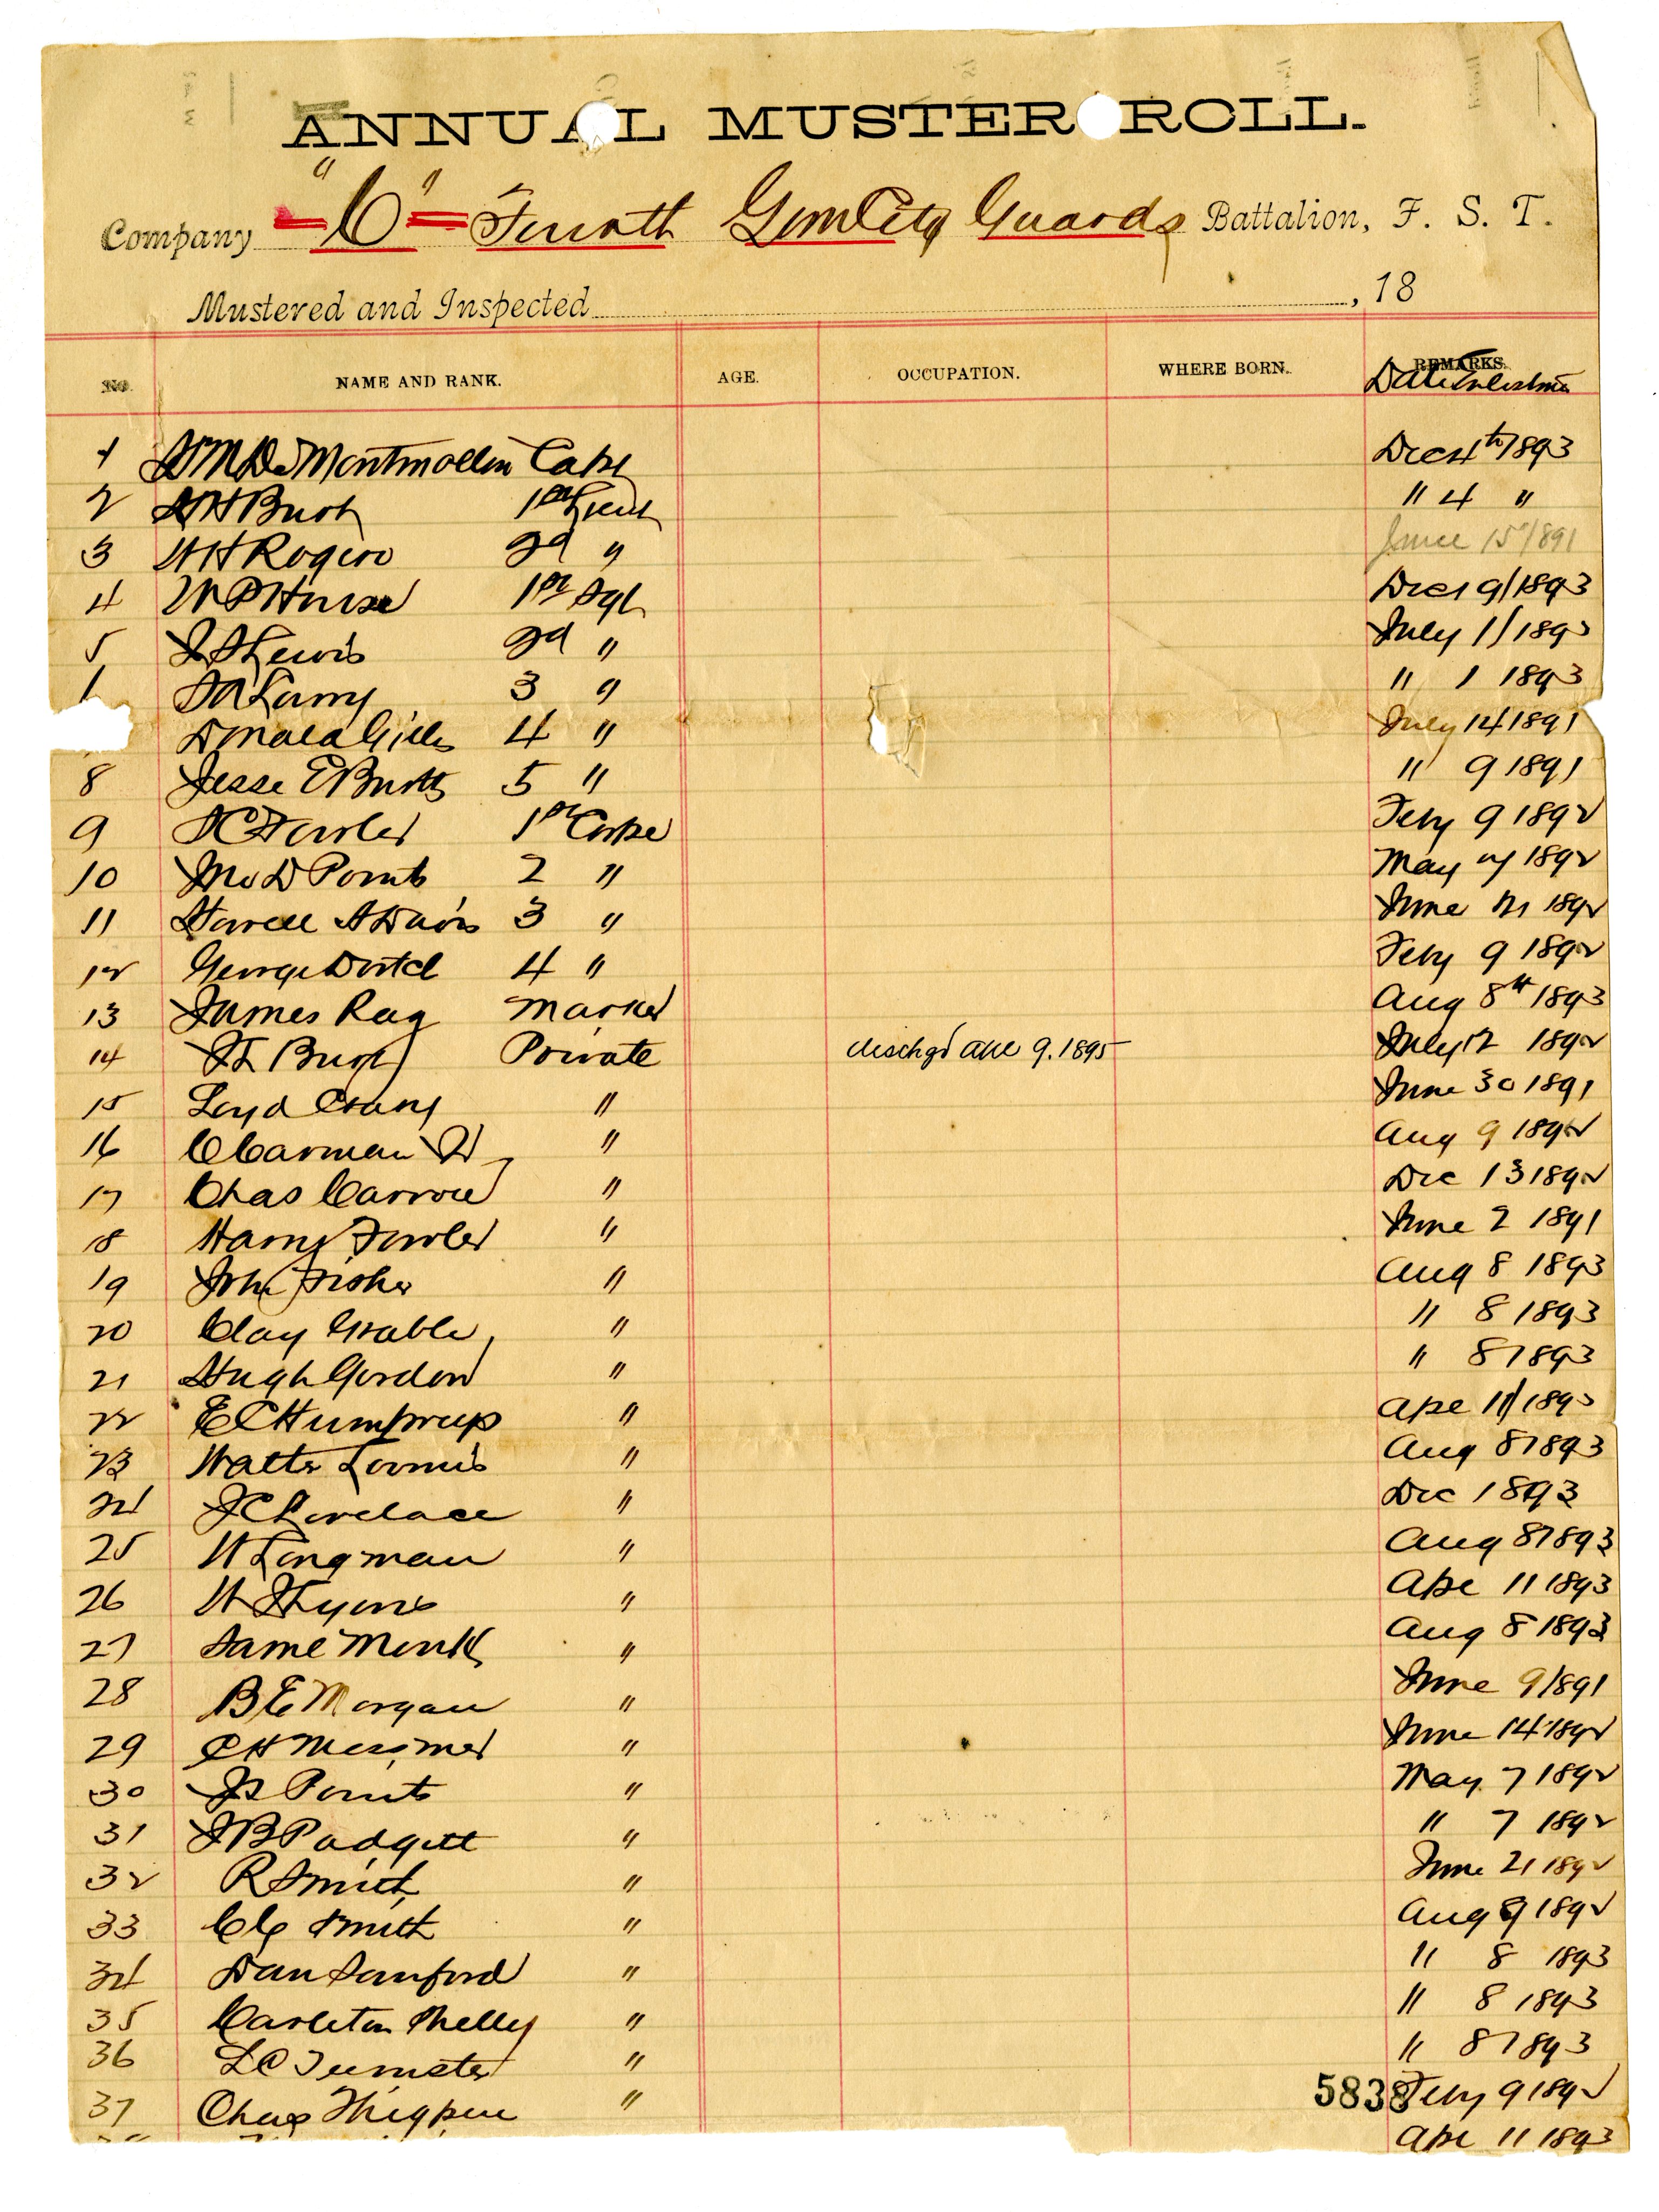 ANNUAL MUSTER ROLL.
Company "C" Fourth Gem City Guards Battalion, F. S. T.
Mustered and Inspected , 18
NO. NAME AND RANK. AGE. OCCUPATION. WHERE BORN. REMARKS. Date Enlistme
1 DeMontmollin Capt Dec 4th 1893
2 Bush 1st Lieut " 4 "
3 W H Rogero 2d " June 15/1891
4 W P House 1st Sgt Dec 19/1893
5 Lewis 2d " July 1/1893
Larry 3 " " 1 1893
Donald Gillis 4 " July 14 1891
8 Jesse E Burtts 5 " " 9 1891
9 Fowler 1st Corpl Feby 9 1892
10 Jno D Points 2 " May 1892
11 Howell A Davis 3 " June 21 1892
12 George Dortch 4 " Feby 9 1892
13 James Ray Marker Aug 8th 1893
14 Private dischgd 9. 1895 July 12 1892
15 Loyd " June 30 1891
16 C Carman Jr " Aug 9 1892
17 Chas " Dec 13 1892
18 Harry Fowler " June 2 1891
19 John Fisher " Aug 8 1893
20 Clay Grable " " 8 1893
21 Hugh Gordon " " 8 1893
22 E C " Apl 11/1893
23 Walter Loomis " Aug 8 1893
24 J C Lovelace " Dec 1893
25 W Longman " Aug 8 1893
26 W Lyons " Apl 11 1893
27 " Aug 8 1893
28 B E Morgan " June 9 1891
29 C H Messmer " June 14 1892
30 Points " May 7 1892
31 J B Padgett " " 7 1892
32 R Smith " June 21 1892
33 Smith " Aug 9 1892
34 Dan Sanford " " 8 1893
35 Carleton Shelley " " 8 1893
36 L C " " 8 1893
37 Chas Thigpen " 5838 Feby 9 1892
Apl 11 1893